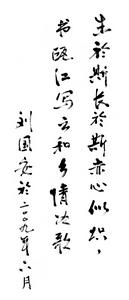 生於斯长於斯赤心似炽，
书瓯江写云和乡情如歌
刘国安於二〇〇九年六月